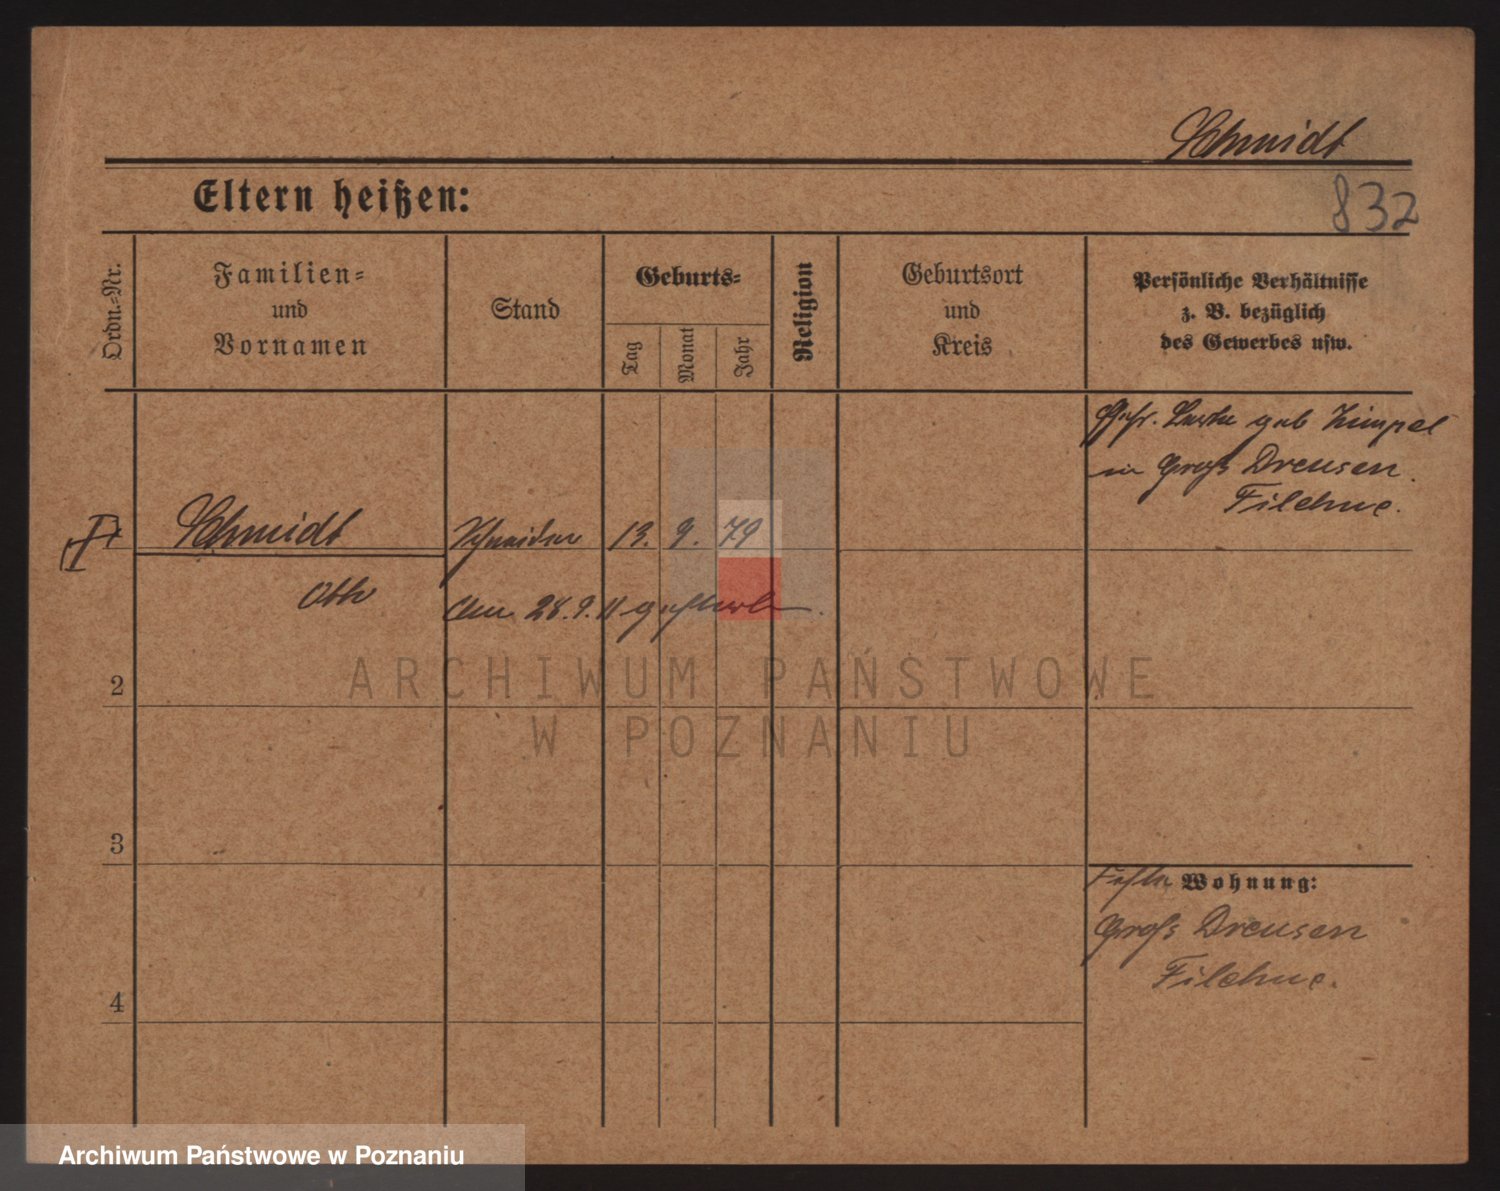 Schmidt
Eltern heißen:
832
Ordn.-Nr.
Familien-
und
Vornamen
Stand
Geburts-
Tag
Monat
Jahr
Religion
Geburtsort
und
Kreis
Persönliche Verhältnisse
z. B. bezüglich
des Gewerbes usw.
geb Zimpel
in Groß Dreusen.
Filehne.
Schmidt
Schneider 13. 9. 79
Otto
Am 28. 9. 11 gestorben.
2
3
4
Wohnung:
Groß Dreusen
Filehne.
ARCHIWUM PAŃSTWOWE
W POZNANIU
Archiwum Państwowe w Poznaniu